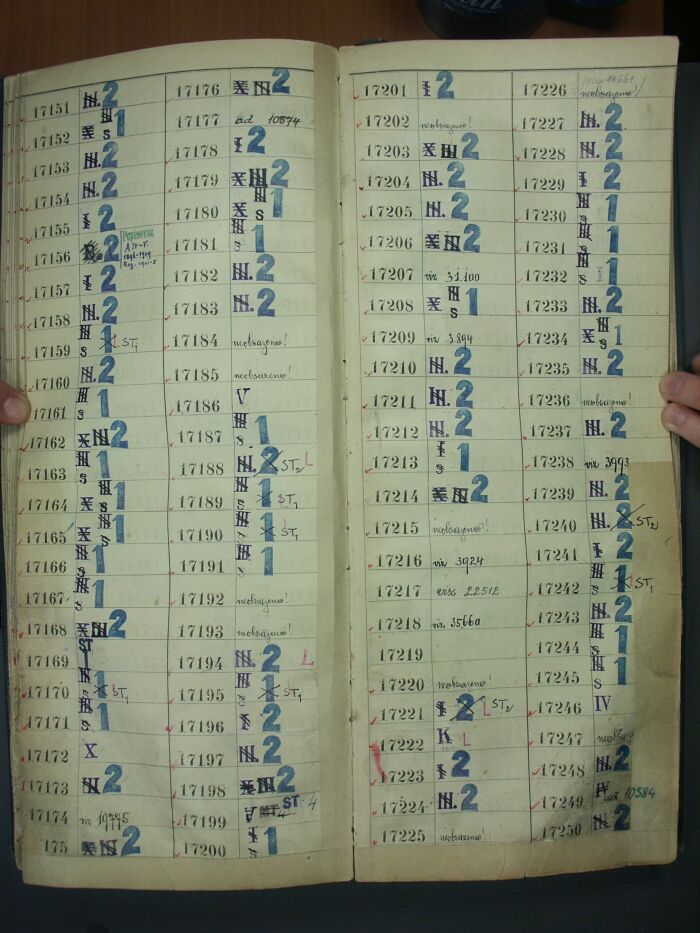 17151 III. 2
17152 X III s 1
17153 III. 2
17154 III. 2
17155 I 2
17156 2 Popisovna
17157 I 2
17158 III. 2
17159 III s 1 X ST1
17160 III. 2
17161 III s 1
17162 X III 2
17163 III s 1
17164 X III s 1
17165 X III s 1
17166 III s 1
17167 III s 1
17168 X III 2
17169 ST 1
17170 III s 1 X ST1
17171 III s 1
17172 X
17173 III 2
17174
175 X III 2
17176 X III 2
17177 ad 10574
17178 I 2
17179 X III 2
17180 X III s 1
17181 III s 1
17182 III. 2
17183 III. 2
17184 neobsazeno!
17185 neobsazeno!
17186 V
17187 III s 1
17188 III. 2 X ST2 L
17189 III s 1 X ST1
17190 III s 1 X ST1
17191 III s 1
17192 neobsazeno!
17193 neobsazeno!
17194 III. 2 L
17195 III s 1 X ST1
17196 I 2
17197 III. 2
17198 X III 2
17199 V ST 4
17200 I s 1
17201 I 2
17202 neobsazeno!
17203 X III 2
17204 III. 2
17205 III. 2
17206 X III 2
17207 viz 31.100
17208 X III s 1
17209 viz 3.894
17210 III. 2
17211 III. 2
17212 III. 2
17213 I s 1
17214 X III 2
17215 neobsazeno!
17216 viz 3924
17217 22512
17218 viz 35660
17219
17220 neobsazeno!
17221 I 2 X L ST2
17222 K L
17223 I 2
17224 III. 2
17225 neobsazeno!
17226 neobsazeno!
17227 III. 2
17228 III. 2
17229 I 2
17230 III s 1
17231 III s 1
17232 III s 1
17233 III. 2
17234 X III s 1
17235 III. 2
17236 neobsazeno!
17237 III. 2
17238 viz 3993
17239 III. 2
17240 III. 2 X ST2
17241 I 2
17242 III s 1 X ST1
17243 III. 2
17244 III s 1
17245 III s 1
17246 IV
17247
17248 III. 2
17249 IV ad 10584
17250 III 2